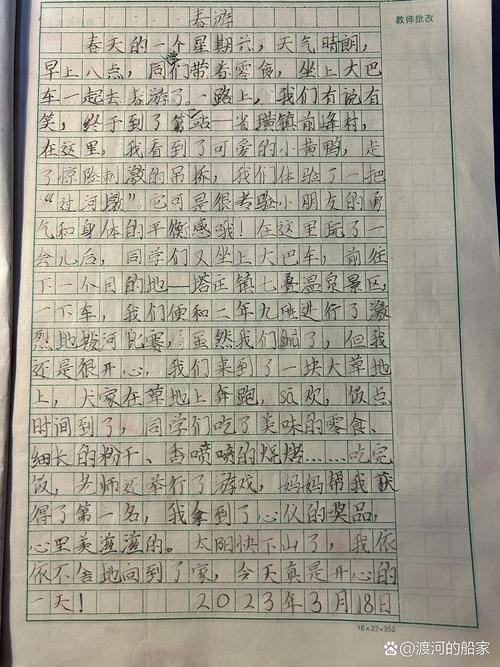 春游
教师批改
春天的一个星期六，天气晴朗，
早上八点，同学们带着零食，坐上大巴
车一起去春游了，一路上，我们有说有
笑，终于到了第一站—省璜镇前峰村，
在这里，我看到了可爱的小黄鸭，走
了惊险刺激的吊桥，我们体验了一把
“过河墩”，它可是很考验小朋友的勇
气和身体的平衡感哦！在这里玩了一
会儿后，同学们又坐上大巴车，前往
下一个目的地—塔庄镇七叠温泉景区，
一下车，我们便和二年九班进行了激
烈地拔河比赛，虽然我们输了，但我
还是很开心，我们来到了一块大草地
上，大家在草地上奔跑，狂欢，饭点
时间到了，同学们吃了美味的零食、
细长的粉干、香喷喷的烧烤……吃完
饭，老师还举行了游戏，妈妈帮我获
得了第一名，我拿到了心仪的奖品，
心里美滋滋的。太阳快下山了，我依
依不舍地回到了家，今天真是开心的
一天！ 2023年3月18日
16×22=352
@渡河的船家